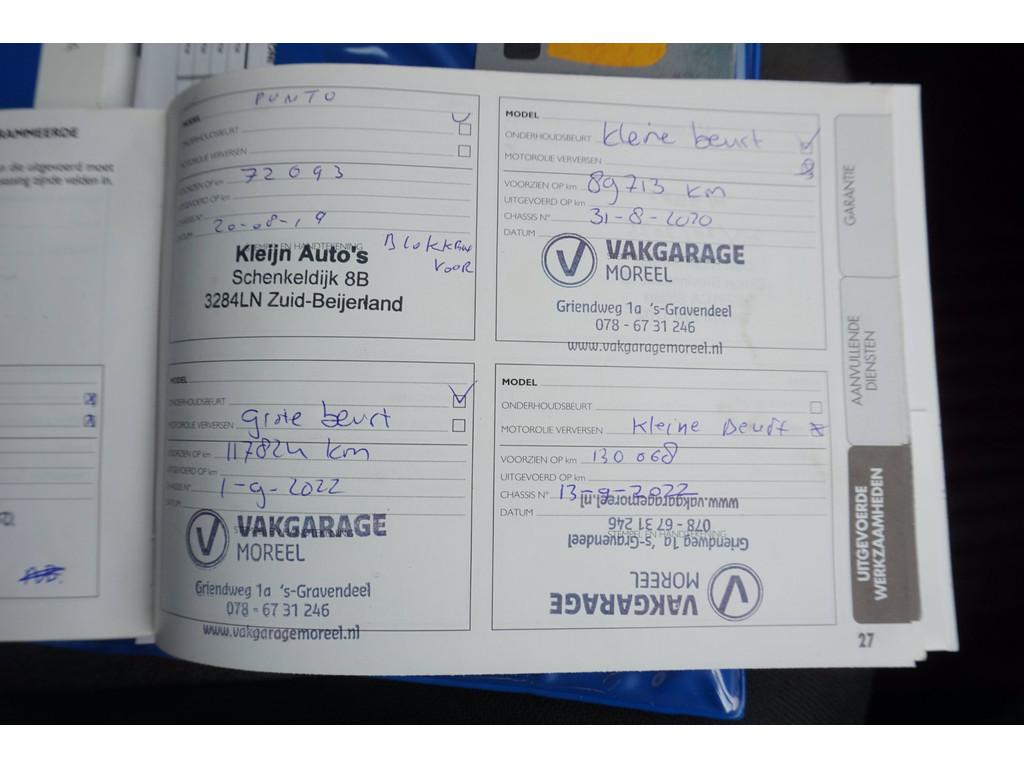 RAMMEERDE
n die uitgevoerd moet
assing zijnde velden in.
PUNTO
MODEL
ONDERHOUDSBEURT
MOTOROLIE VERVERSEN
VOORZIEN OP km 72693
UITGEVOERD OP km
CHASSIS N° 20-08-19
DATUM
STEMPEL EN HANDTEKENING
Kleijn Auto's
Schenkeldijk 8B
3284LN Zuid-Beijerland
VOOR
MODEL
ONDERHOUDSBEURT kleine beurt
MOTOROLIE VERVERSEN
VOORZIEN OP km 89713 km
UITGEVOERD OP km
CHASSIS N° 31-8-2020
DATUM
VAKGARAGE
MOREEL
Griendweg 1a 's-Gravendeel
078 - 67 31 246
www.vakgaragemoreel.nl
MODEL
ONDERHOUDSBEURT
MOTOROLIE VERVERSEN grote beurt
VOORZIEN OP km 117824 km
UITGEVOERD OP km
CHASSIS N° 1-9-2022
DATUM
VAKGARAGE
MOREEL
Griendweg 1a 's-Gravendeel
078 - 67 31 246
www.vakgaragemoreel.nl
MODEL
ONDERHOUDSBEURT
MOTOROLIE VERVERSEN Kleine Beurt
VOORZIEN OP km 130068
UITGEVOERD OP km
CHASSIS N° 13-9-2022
DATUM
STEMPEL EN HANDTEKENING
VAKGARAGE
MOREEL
Griendweg 1a 's-Gravendeel
078 - 67 31 246
www.vakgaragemoreel.nl
GARANTIE
AANVULLENDE
DIENSTEN
UITGEVOERDE
WERKZAAMHEDEN
27